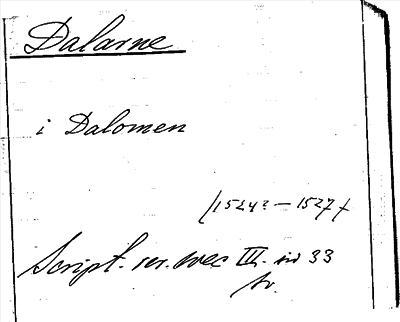 Dalarne
i Dalomen
/1524?—1527/
Script. rer. svec III. sid 33